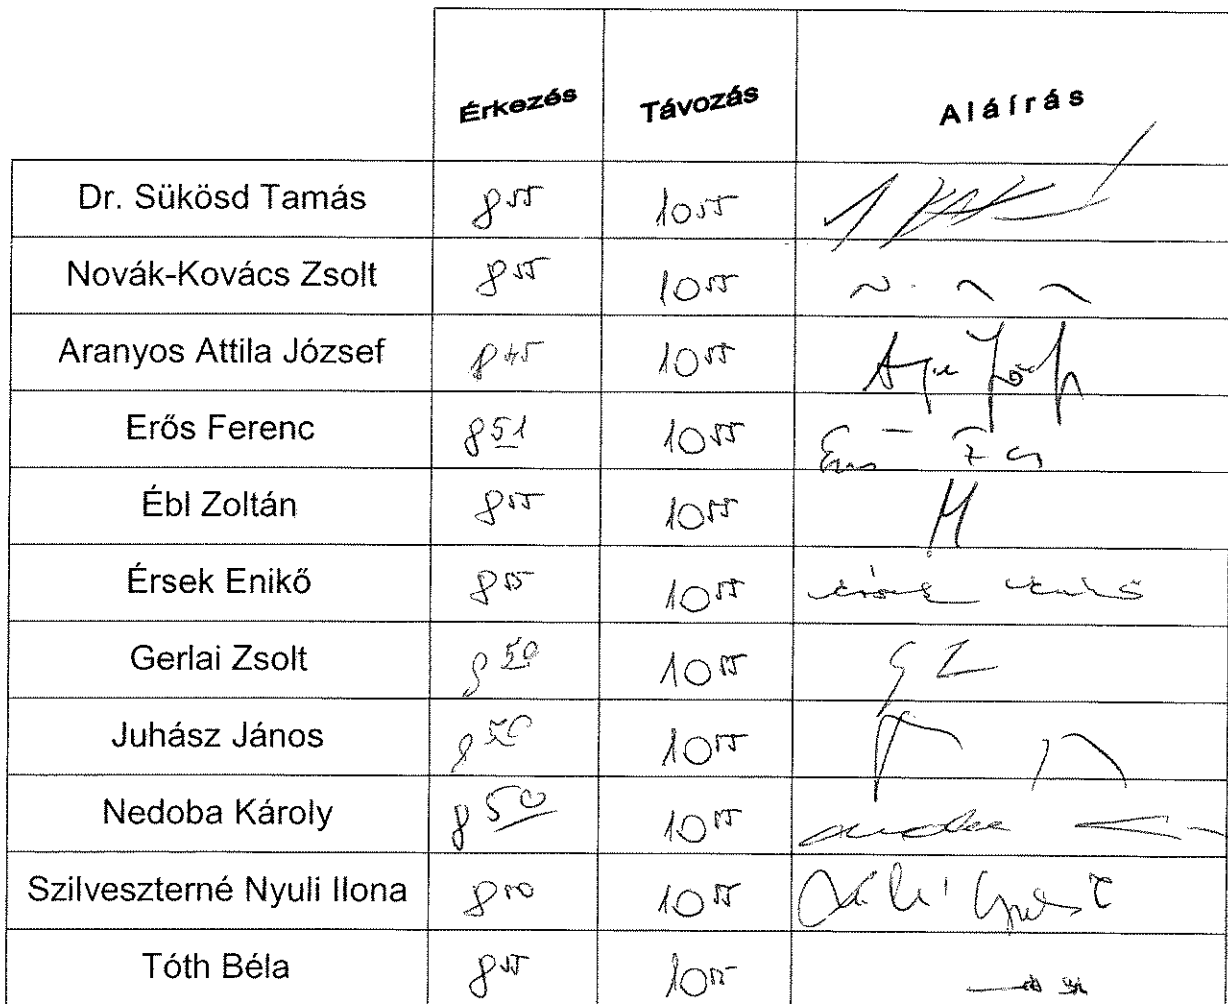 Érkezés Távozás Aláírás
Dr. Sükösd Tamás 8 55 10 55
Novák-Kovács Zsolt 8 55 10 55
Aranyos Attila József 8 45 10 55
Erős Ferenc 8 51 10 55
Ébl Zoltán 8 55 10 55
Érsek Enikő 8 55 10 55
Gerlai Zsolt 8 50 10 55 G Z
Juhász János 8 50 10 55
Nedoba Károly 8 50 10 55
Szilveszterné Nyuli Ilona 8 50 10 55
Tóth Béla 8 55 10 55